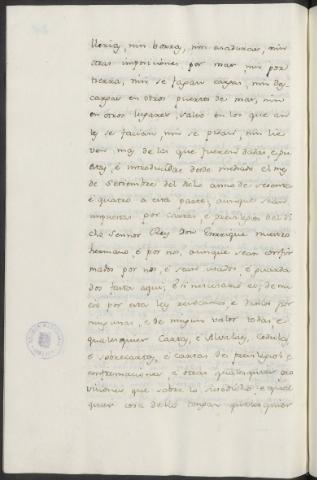 lleria, nin borra, nin asaduras, nin
otras imposiciones por mar nin por
tierra, nin se fagan cargas, nin des
cargas en otros puertos de mar, nin
en otros lugares, salvo en los que an
tes se facian, nin se pidan, nin lie
ven mas de las que fueron dadas, e pu
estas, e introducidas desde mediado el mes
de Setiembre del dicho anno de sesenta
e quatro a esta parte, aunque sean
impuestas por cartas, e previlegios del di
cho Sennor Rey Don Enrrique nuestro
hermano, e por nos, aunque sean confir
mados por nos, e sean usados, e guarda
dos fasta aqui; e si necesario es; de nue
vo por esta ley revocamos e damos por
ningunas, e de ningun valor todas, e
qualesquier Cartas, e Alvalaes, Cedulas,
e sobrecartas, e cartas de previlegios, e
confirmaciones e otras qualesquier pro
visiones que sobre lo susodicho, e qual
quier cosa dello tengan qualesquier